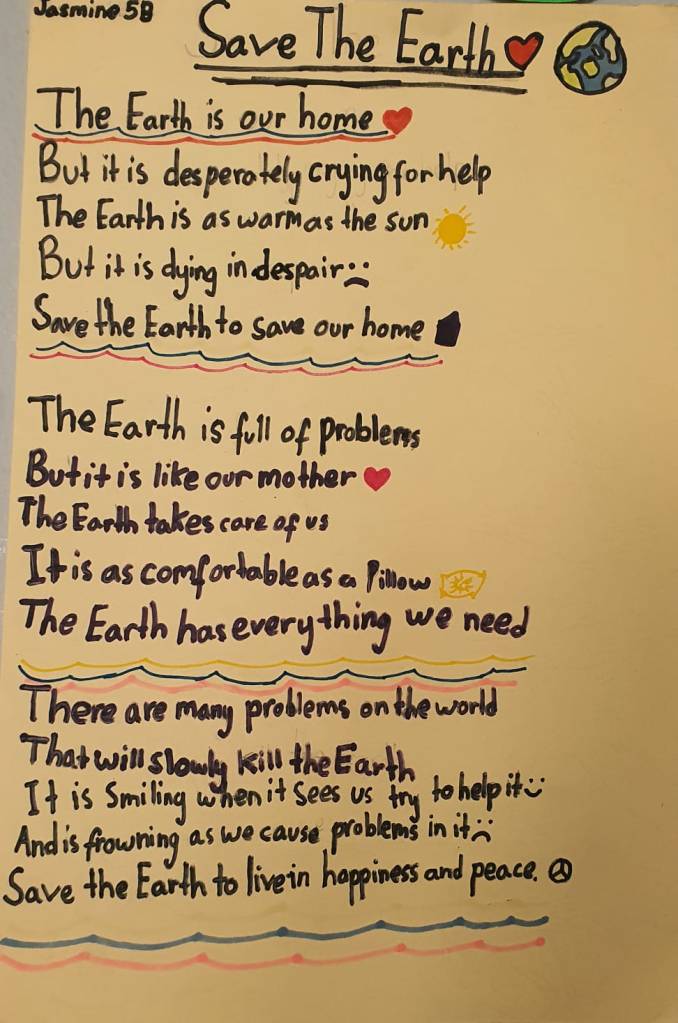 Jasmine 5B
Save The Earth
The Earth is our home
But it is desperately crying for help
The Earth is as warm as the sun
But it is dying in despair
Save the Earth to save our home
The Earth is full of problems
But it is like our mother
The Earth takes care of us
It is as comfortable as a Pillow
The Earth has everything we need
There are many problems on the world
That will slowly kill the Earth
It is Smiling when it sees us try to help it
And is frowning as we cause problems in it
Save the Earth to live in happiness and peace.